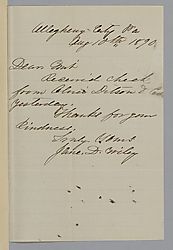 Allegheny City Pa
Aug 10th 1890
Dear
Received check
from
yesterday.
Thanks for your
kindness.
Truly Yours
Jane D.